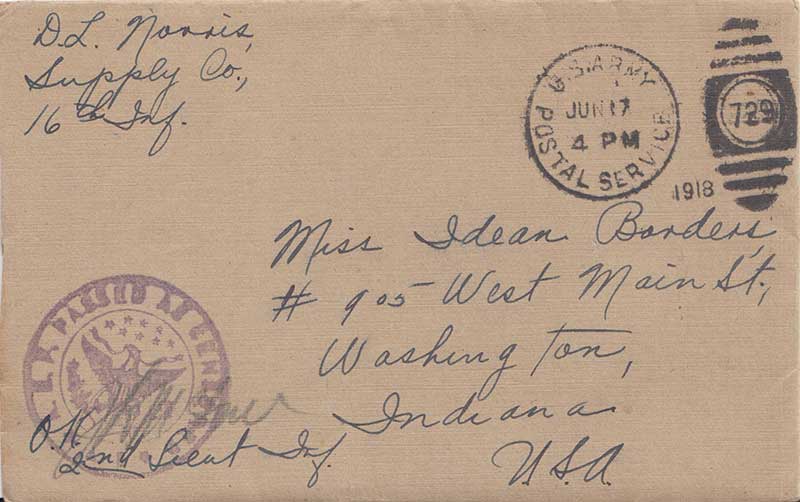 D. L. Norris,
Supply Co.,
16th Inf.
U.S. ARMY
JUN 17
4 PM
POSTAL SERVICE
1918
729
Miss Idean Borders,
# 905 West Main St.,
Washington,
Indiana
U.S.A.
A.E.F. PASSED AS CENSORED
O.K.
2nd Lieut Inf.